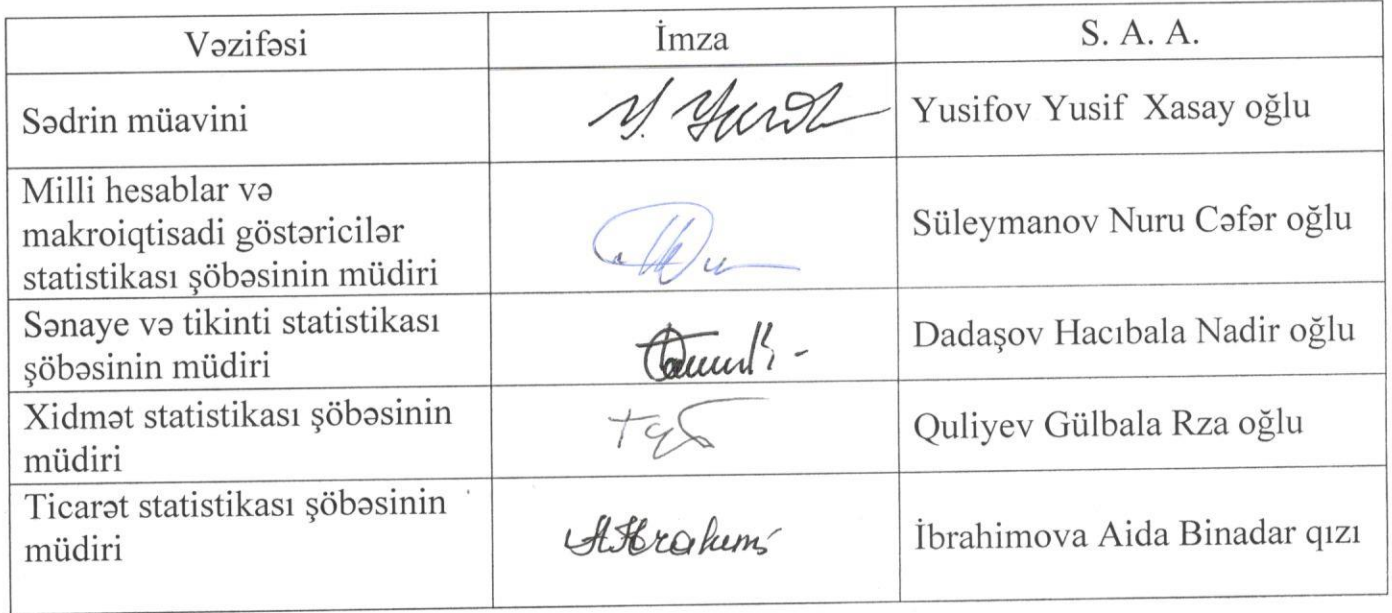 Vəzifəsi İmza S. A. A.
Sədrin müavini Yusifov Yusif Xasay oğlu
Milli hesablar və
makroiqtisadi göstəricilər
statistikası şöbəsinin müdiri
Süleymanov Nuru Cəfər oğlu
Sənaye və tikinti statistikası
şöbəsinin müdiri
Dadaşov Hacıbala Nadir oğlu
Xidmət statistikası şöbəsinin
müdiri
Quliyev Gülbala Rza oğlu
Ticarət statistikası şöbəsinin
müdiri
İbrahimova Aida Binadar qızı